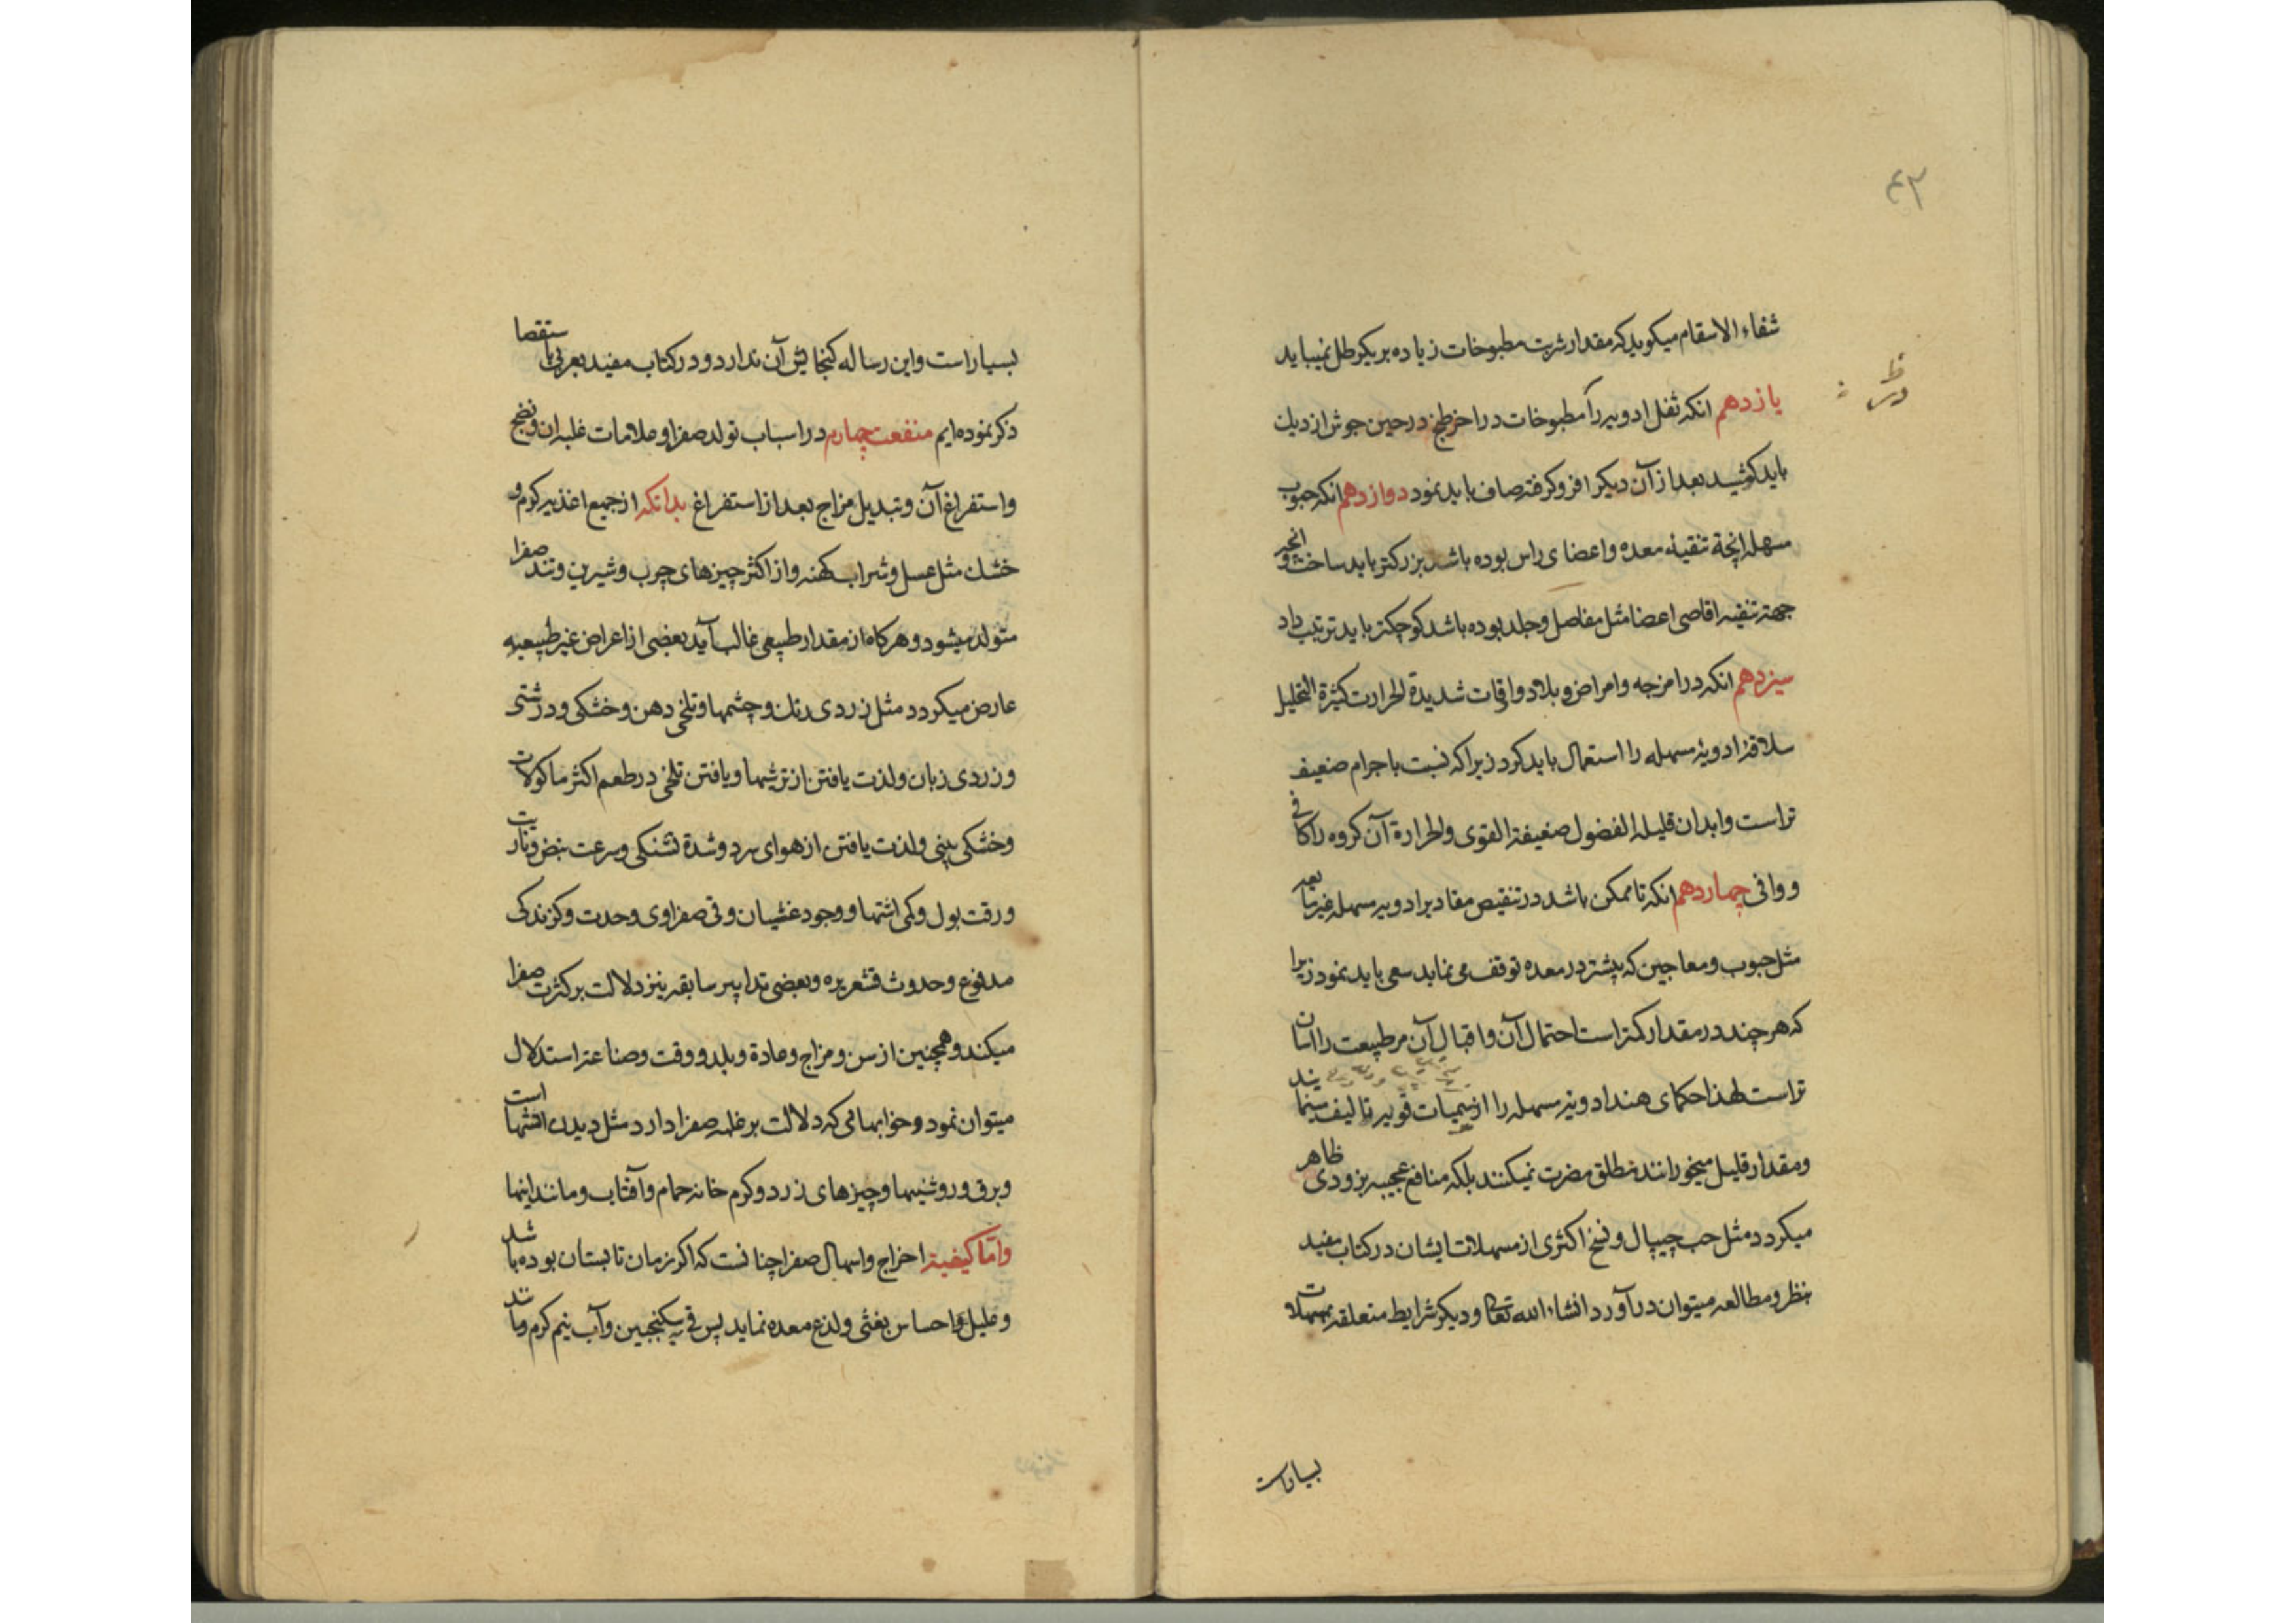 ۴۳
شفاء الاسقام میکوید که مقدار شربت مطبوخات زیاده بر یکرطل نمیباید
یازدهم انکه ثفل ادویه را مطبوخات در اخر طبخ در حین جوش از دیك
باید کشید بعد از آن دیکر افزوکرفته صاف باید نمود دوازدهم انکه حبوب
مسهله انچه تنقیهٔ معده و اعضای راس بوده باشد بزرکتر باید ساخت و انچه
جهة تنقیه اقاصی اعضا مثل مفاصل و جلد بوده باشد کوچکتر باید ترتیب داد
سیزدهم انکه در امزجه و امراض و بلاد و اوقات شدیدة الحرارت کثیرة التحلیل
سلاقهٔ ادویهٔ مسهله را استعمال باید کرد زیرا که نسبت باجرام ضعیف
تر است و ابدان قلیله الفضول ضعیفة القوی والحرارة آن کروه را کافی
و وافی چهاردهم انکه تا ممکن باشد در تنقیص مقادیر ادویه مسهله غیر مایعه
مثل حبوب و معاجین که بیشتر در معده توقف می نماید سعی باید نمود زیرا
که هر چند در مقدار کمتر است احتمال آن و اقبال آن مر طبیعت را اسان
تر است لهذا حکمای هند ادویه مسهله را از سمیات قویه تالیف مینمایند
و مقدار قلیل میخورانند مطلق مضرت نمیکنند بلکه منافع عجیبه بزودی ظاهر
میکردد مثل حب جیپال و نسخ اکثری از مسهلات ایشان در کتاب مفید
بنظر و مطالعه میتوان در آورد انشاء الله تعالی و دیکر شرایط متعلقه بمسهلات
بسیار است
بسیار است و این رساله کنجایش آن ندارد و در کتاب مفید بعربی باستقصا
ذکر نموده ایم منفعت چهارم در اسباب تولد صفرا و علامات غلبه ان و نضج
و استفراغ آن و تبدیل مزاج بعد از استفراغ بدانکه از جمیع اغذیه کرم و
خشك مثل عسل و شراب کهنه و از اکثر چیزهای چرب و شیرین و تند صفرا
متولد میشود و هرکاه از مقدار طبیعی غالب آید بعضی از اعراض غیر طبیعیه
عارض میکردد مثل زردی رنك و چشمها و تلخی دهن و خشکی و درشتی
و زردی زبان و لذت یافتن از ترشیها و یافتن تلخی در طعم اکثر ماکولات
و خشکی بینی و لذت یافتن از هوای سرد و شدة تشنکی و سرعت نبض و ناریت
و رقت بول و کمی اشتها و وجود غشیان و قی صفراوی وحدت و کزندکی
مدفوع و حدوث قشعریره و بعضی تدابیر سابقه نیز دلالت بر کثرت صفرا
میکند و همچنین از سن و مزاج و عادة و بلد و وقت و صناعة استدلال
میتوان نمود و خوابهائی که دلالت بر غلبه صفرا دارد مثل دیدن اتشها است
و برق و روشنیها و چیزهای زرد و کرم خانه حمام و آفتاب و مانند اینها
و امّا کیفیة اخراج و اسهال صفرا چنانست که اکر زمان تابستان بوده باشد
و علیل احساس بغثی و لذع معده نماید پس قی بسکنجبین و آب نیم کرم و مانند